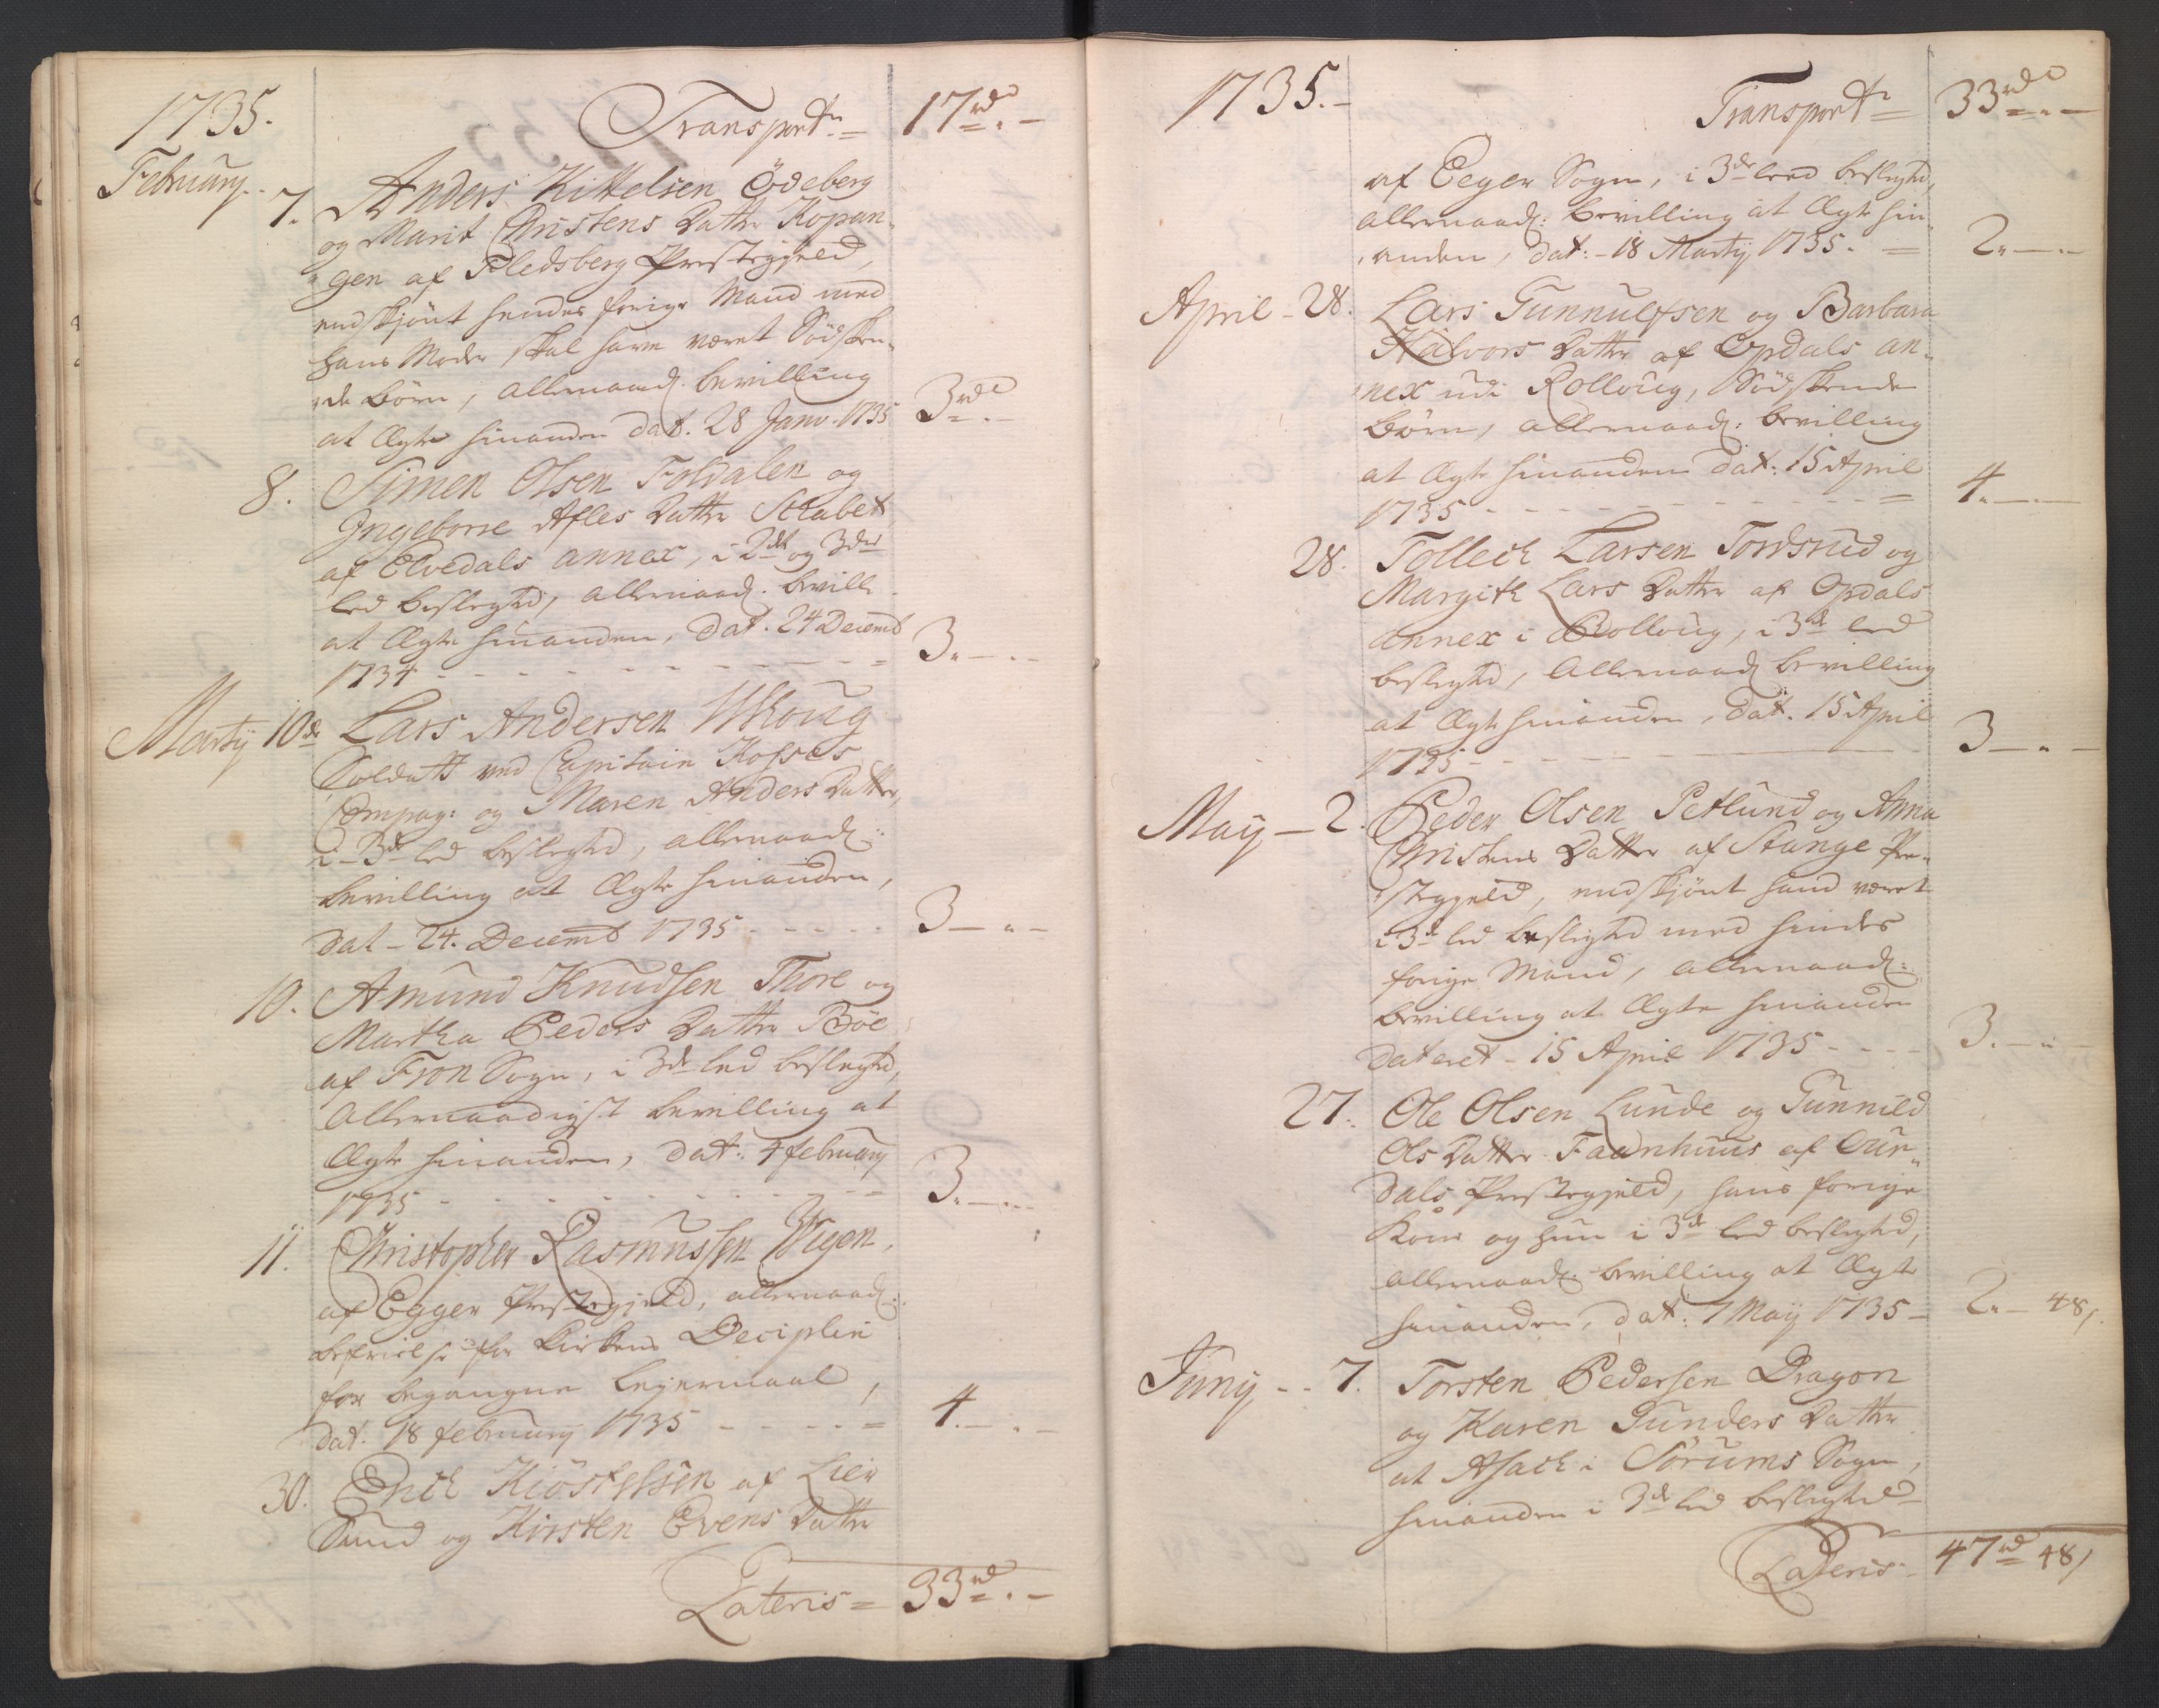 1735.
Transport = 17 rd. -
February. 7. Anders Kittelsen Ödeberg
og Marit Christens Datter Kopan-
gen af Fledsberg Prestegjeld,
endskjönt hendes forige Mand med
hans Moder skal have været Södsken-
de Börn, allernaad. bevilling
at Ægte hinanden dat. 28 Janv. 1735 3 rd. -
8. Simen Olsen Foldalen og
Ingeborre Afles Datter Strabet
af Elvedals annex, i 2det og 3die
led beslegted, allernaad. bevill.
at Ægte hinanden, dat. 24 Decemb
1734 - - - - - - - = 3. - . -
Martij 10de Lars Andersen
Soldatt ved Capitain Kofses
Compag: og Maren Anders Datter,
i 3de led beslegted, allernaad:
bevilling at Ægte hinanden,
dat - 24. Decemb 1735 - - - - - 3 - . -
10. Amund Knudsen Thore og
Martha Peders Datter Böe
af Fron Sogn, i 3de led beslegted,
Allernaadigst bevilling at
Ægte hinanden, dat: 4 february
1735 - - - - - - - = 3. - . -
11. Christopher Rasmussen Wigen,
af Egger Prestegjeld, allernaad:
befrielse for Kirkens Deciplin
for begangne Lejermaal,
dat. 18 february 1735 - - - - = 4. - . -
30. Erich Kiöstelsen af Lier
Sund og Kirsten Evens Datter
Lateris = 33 rd. -
1735. -
Transport = 33 rd. -
af Eeger Sogn, i 3de leed beslegted,
allernaad: bevilling at Ægte hin-
anden, dat: - 18 Martij 1735. = 2. - . -
April - 28. Lars Gunnulfsen og Barbara
Halvors Datter af Opdals an-
nex udi Rolloug, Södskende
Börn, allernaad: bevilling
at Ægte hinanden dat: 15 April
1735 - - - - - - - = 4. - . -
28. Tollech Larsen Tordsrud og
Margith Lars Datter af Opdals
annex i Rolloug, i 3de led
beslegted, Allernaad bevilling
at Ægte hinanden, dat. 15 April
1735 - - - - - 3 - . -
Maij - 2. Peder Olsen Petlund og Anna
Christens Datter af Stange Pre-
stegjeld, endskjönt hand været
i 3de led beslegted med hendes
forige Mand, allernaad:
bevilling at Ægte hinanden
dateret - 15 April 1735 - - - - 3. - . -
27. Ole Olsen Lunde og Gunnild
Ols Datter Faavnhuus af Our-
dals Prestegjeld, hans forige
Kone og hun i 3de led beslegted,
allernaad: bevilling at Ægte
hinanden, dat: 7 Maij 1735 - 2. - 48/.
Junij - - 7. Torsten Pedersen Dragon
og Karen Gunders Datter
at Asach i Sörums Sogn,
hinanden i 3de led beslegted
Lateris - 47 rd 48/